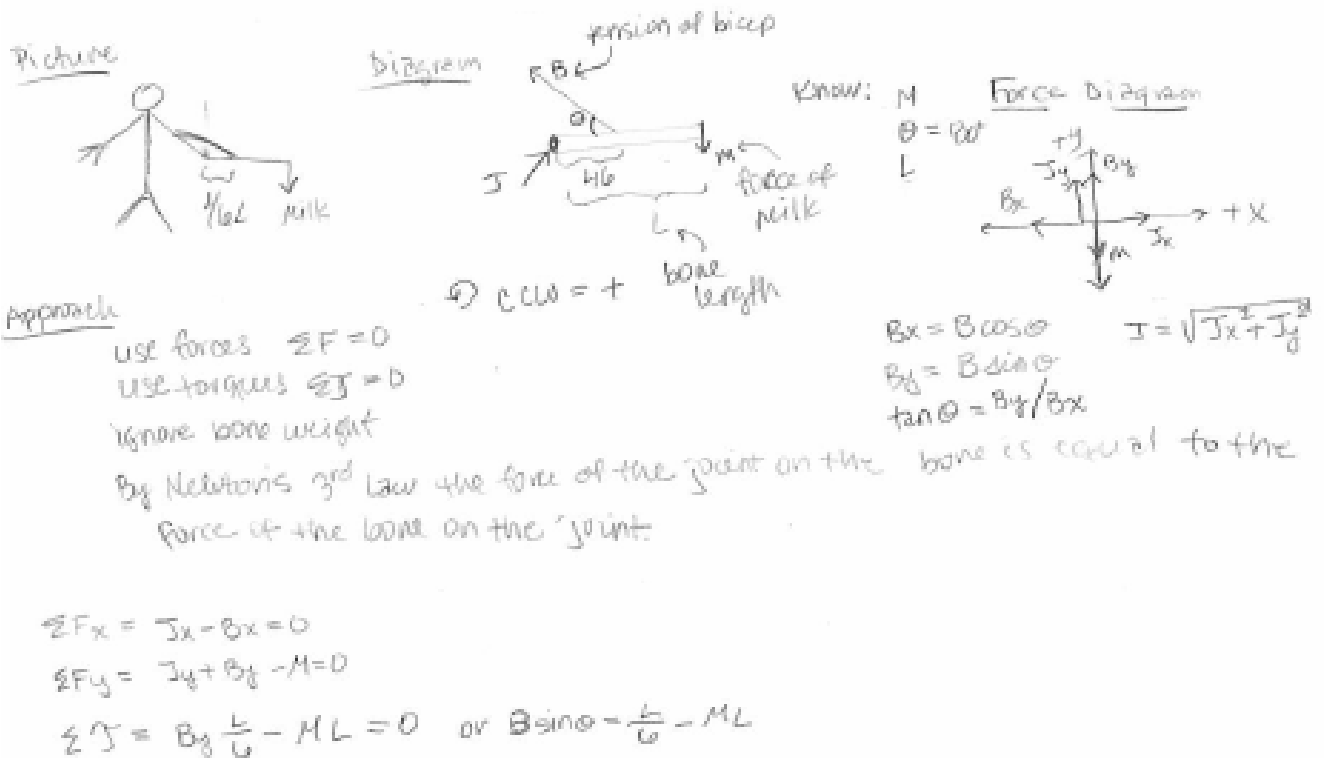 Picture
1/6L
Milk
Diagram
tension of bicep
B
θ
J
L/6
M
force of
milk
L
bone
length
CCW = +
Know: M
θ = 80°
L
Force Diagram
+y
Jy
By
Bx
+x
Jx
M
Bx = Bcosθ
By = Bsinθ
tanθ = By/Bx
J = √Jx² + Jy²
Approach
use forces ΣF = 0
use torques ΣJ = 0
ignore bone weight
By Newtons 3rd Law the force of the joint on the bone is equal to the
force of the bone on the joint.
ΣFx = Jx - Bx = 0
ΣFy = Jy + By - M = 0
ΣJ = By L/6 - ML = 0 or Bsinθ - L/6 - ML